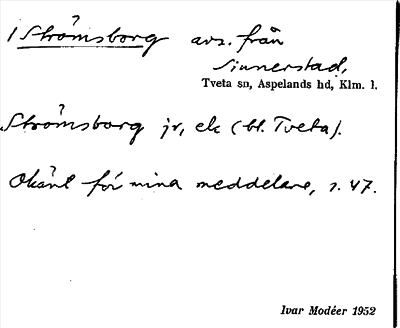 1 Strömsborg avs. från
Sinnerstad,
Tveta sn, Aspelands hd, Klm. l.
Strömsborg jr, ek (bl. Tveta).
Okänt för mina meddelare, s. 47.
Ivar Modéer 1952